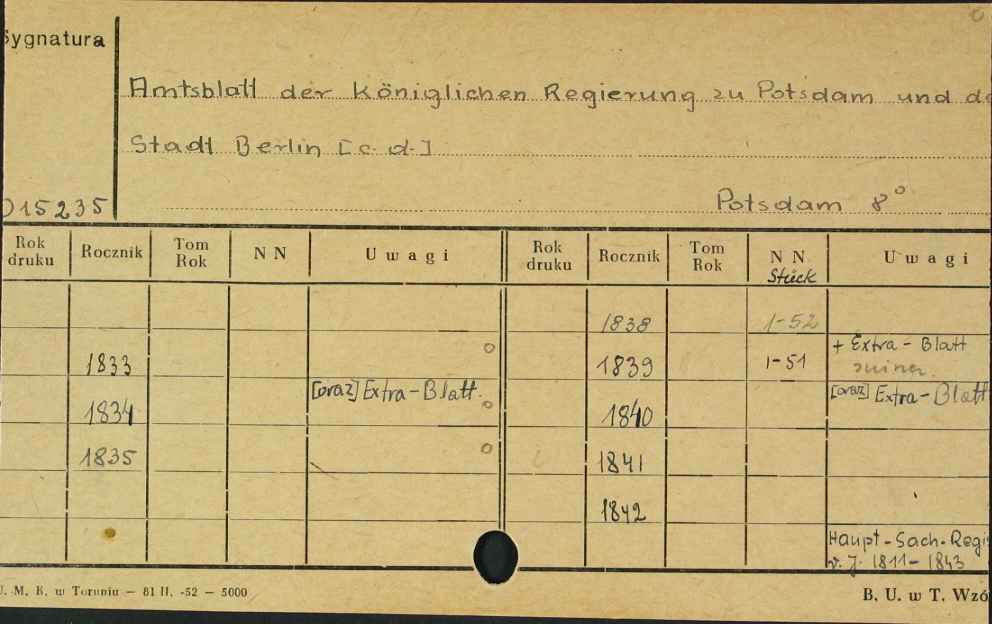 Sygnatura
Amtsblatt der Königlichen Regierung zu Potsdam und de
Stadt Berlin [c. d.]
015235
Potsdam 8°
Rok druku Rocznik Tom Rok N N Uwagi Rok druku Rocznik Tom Rok N N Stück Uwagi
1838 1-52
1833 1839 1-51 + Extra-Blatt
1834 [oraz] Extra-Blatt. 1840 [oraz] Extra-Blatt
1835 1841
1842
Haupt-Sach-Regi
v. J. 1811-1843
U. M. K. w Toruniu — 81 II. -52 — 5000
B. U. w T. Wzó